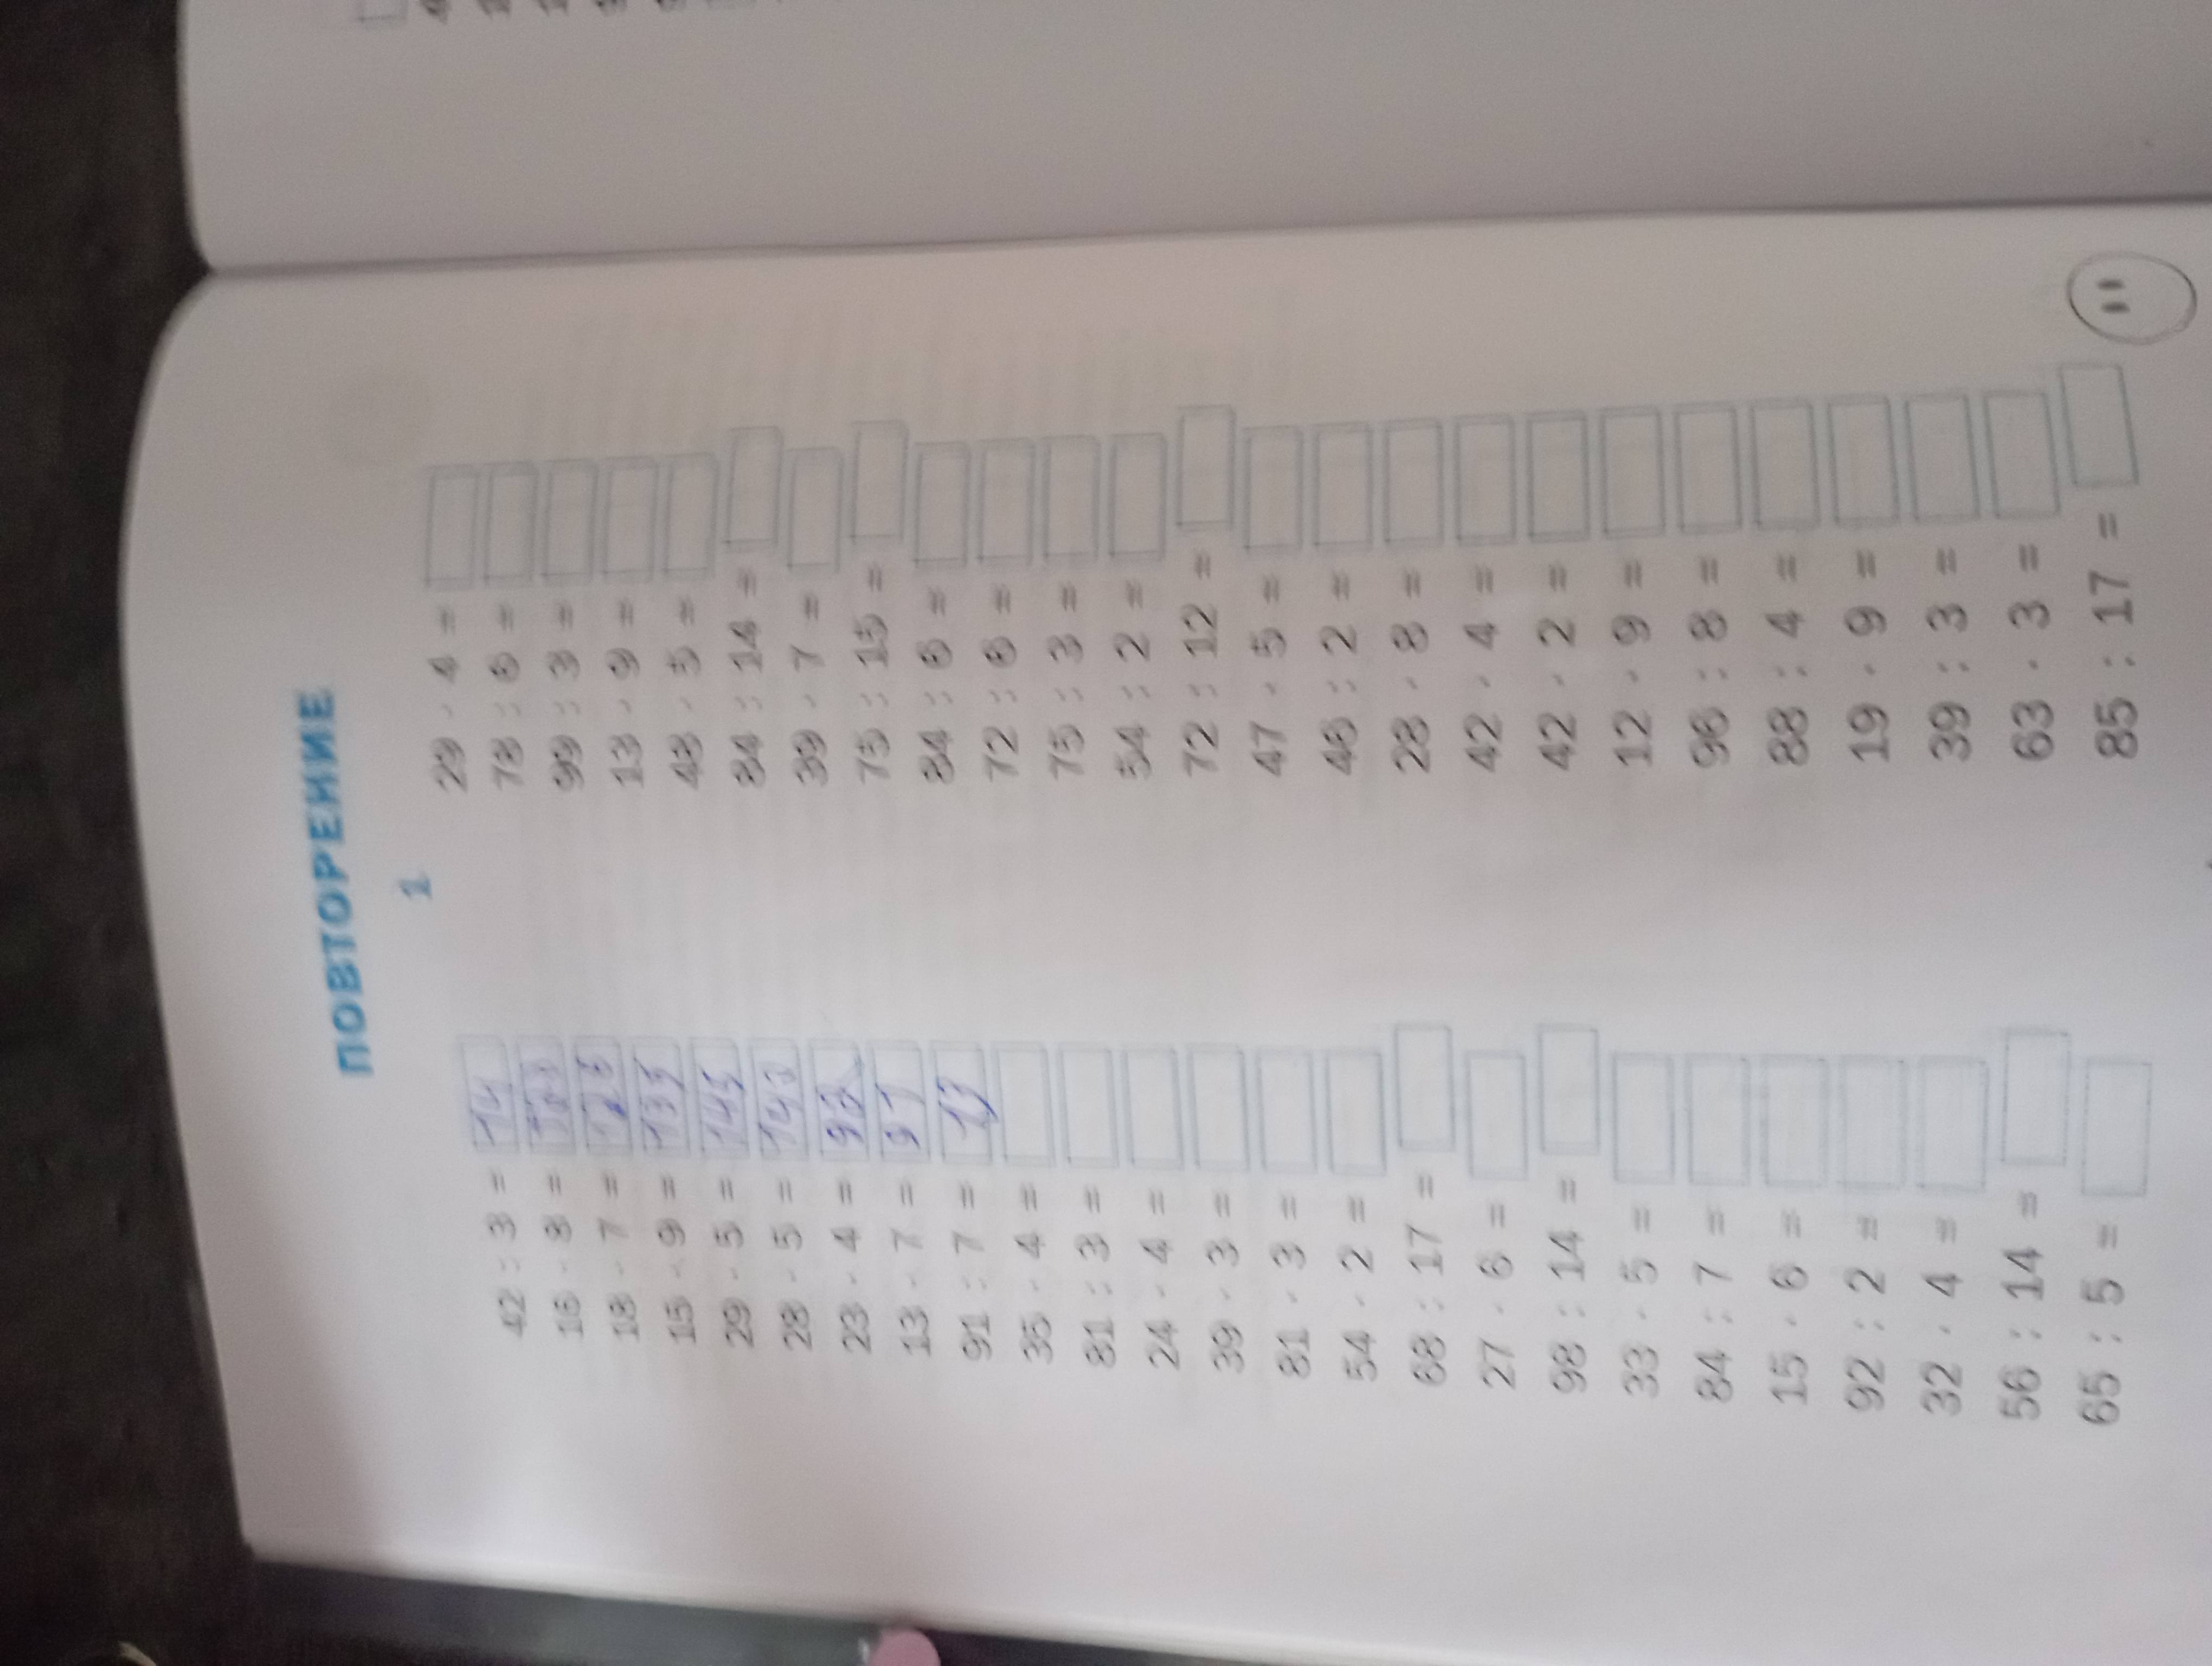 ПОВТОРЕНИЕ
1
42 : 3 = 14
16 · 8 =
18 · 7 = 126
15 · 9 = 135
29 · 5 = 145
28 · 5 = 140
23 · 4 = 92
13 · 7 = 91
91 : 7 = 13
35 · 4 =
81 : 3 =
24 · 4 =
39 · 3 =
81 · 3 =
54 · 2 =
68 : 17 =
27 · 6 =
98 : 14 =
33 · 5 =
84 : 7 =
15 · 6 =
92 : 2 =
32 · 4 =
56 : 14 =
65 : 5 =
29 · 4 =
78 : 6 =
99 : 3 =
13 · 9 =
48 · 5 =
84 : 14 =
39 · 7 =
75 : 15 =
84 : 6 =
72 : 6 =
75 : 3 =
54 : 2 =
72 : 12 =
47 · 5 =
46 : 2 =
28 · 8 =
42 · 4 =
42 · 2 =
12 · 9 =
96 : 8 =
88 : 4 =
19 · 9 =
39 : 3 =
63 · 3 =
85 : 17 =